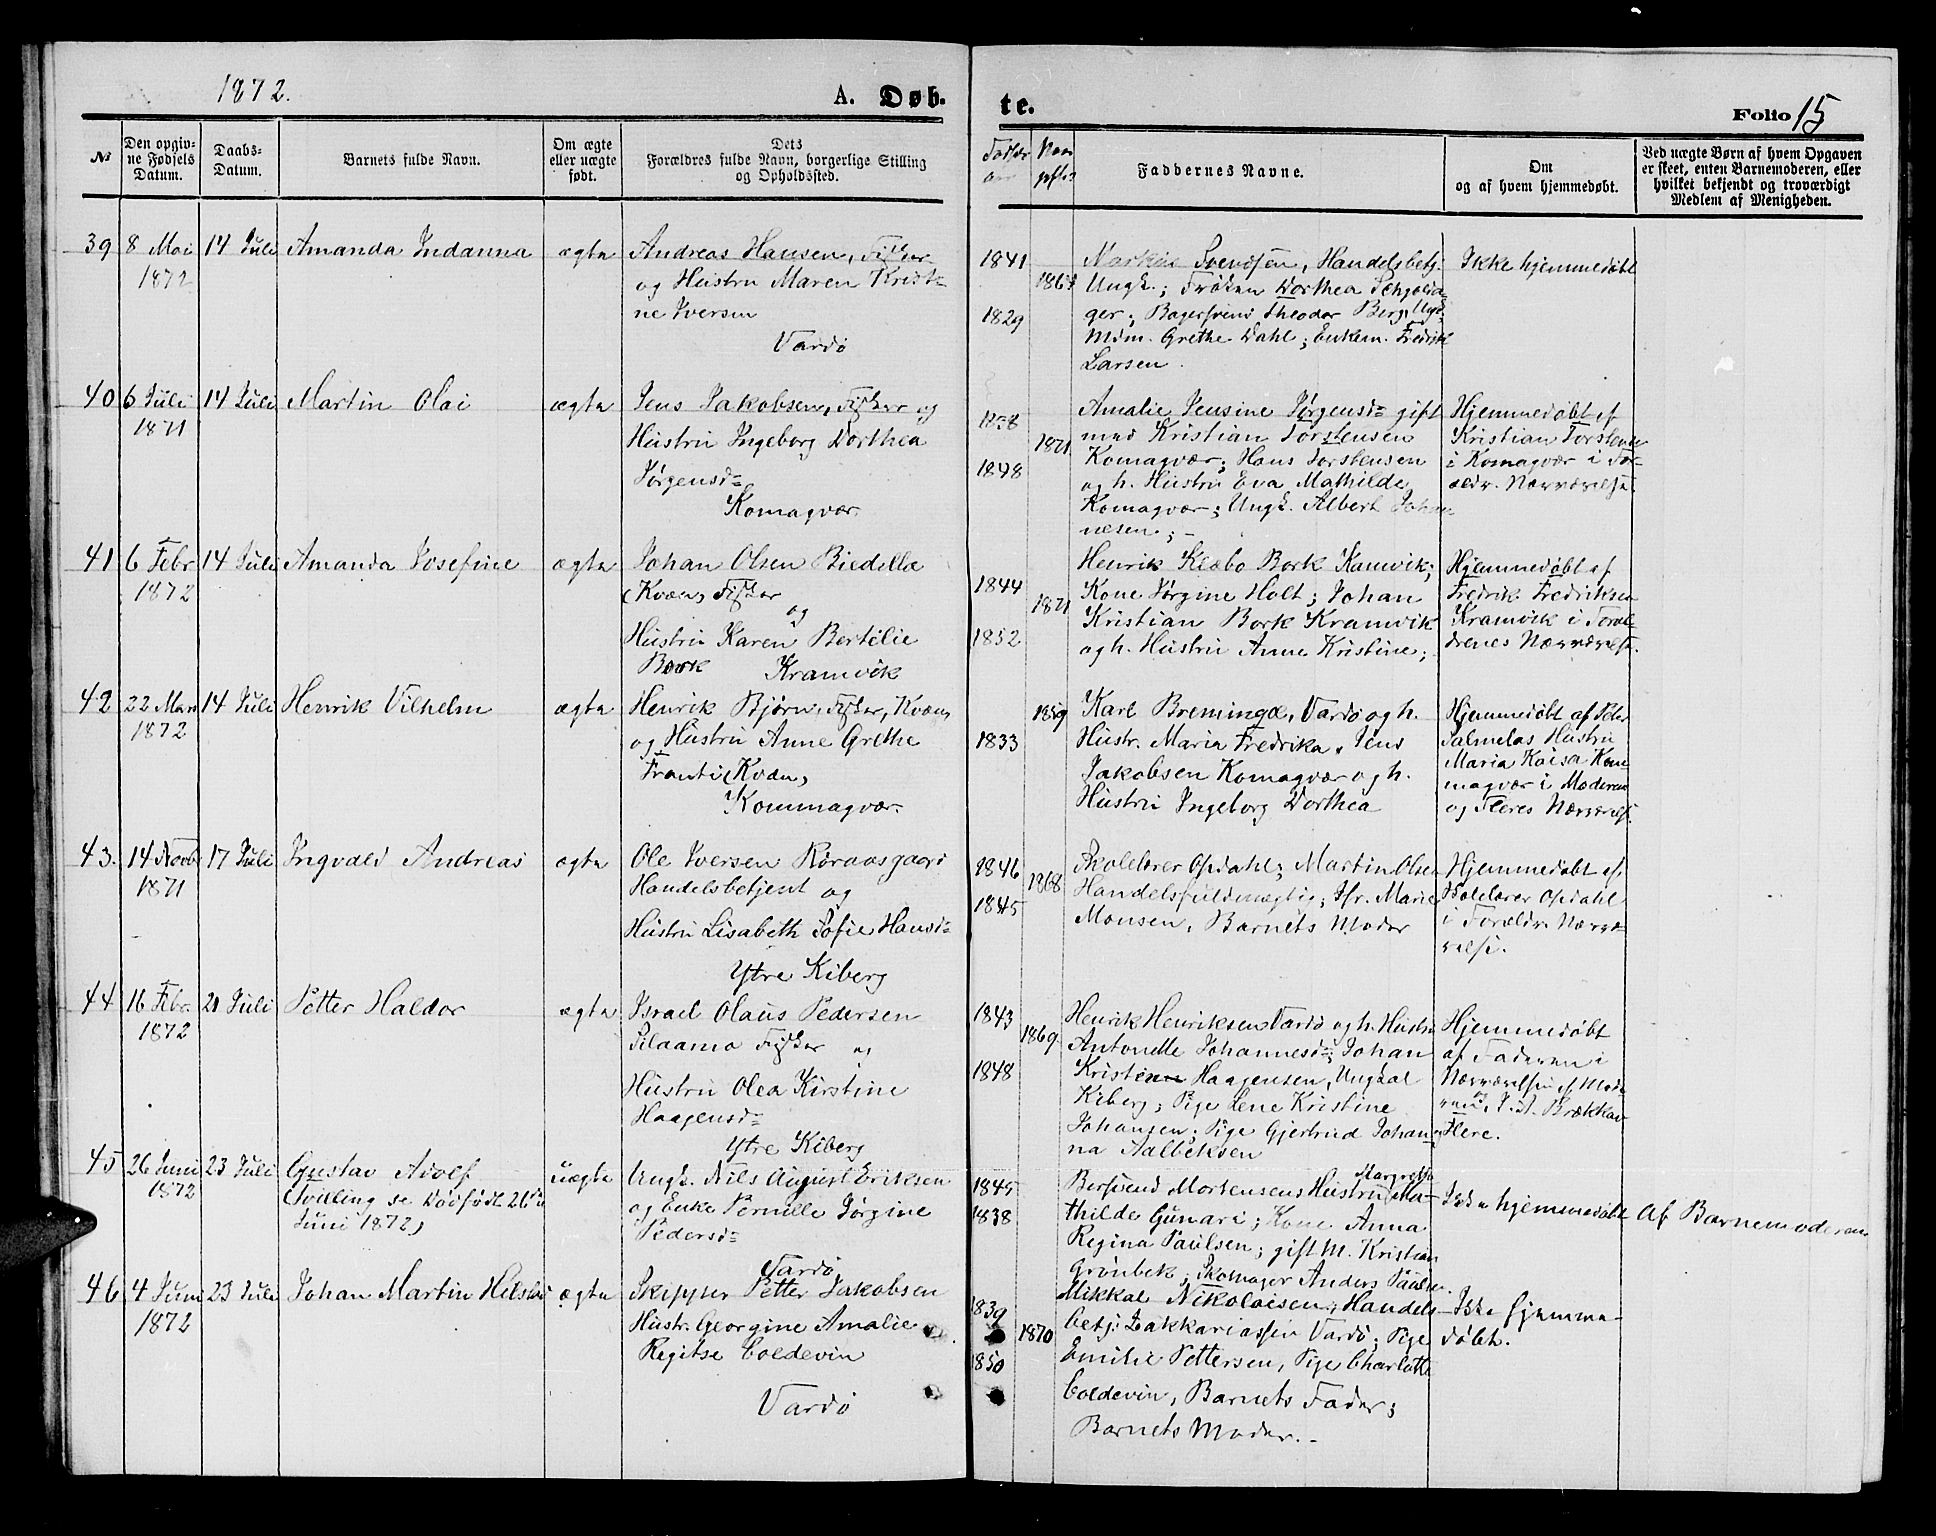 1872.
A. Døb. te.
Folio 15
№
Den opgiv-
ne Fødsels
Datum.
Daabs-
Datum.
Barnets fulde Navn.
Om ægte
eller uægte
født.
Dets
Forældres fulde Navn, borgerlige Stilling
og Opholdssted.
Faddernes Navne.
Om
og af hvem hjemmedøbt.
Ved uægte Børn af hvem Opgaven
er skeet, enten Barnemoderen, eller
hvilket bekjendt og troværdigt
Medlem af Menigheden.
39
8 Mai
1872
14 Juli
Amanda Indanna
ægte
Andreas Hansen, Fisker
og Hustru Maren Kristi-
ne Iversen
Vardø
1841
1829
Svendsen, Handelsbetj.
Ungk.; Frøken Dorthea
ger; Bagersvend Theodor Berg, Ungk.
Mdm. Grethe Dahl; Enkem. Fredrik
Larsen.
Ikke hjemmedøbt
40
6 Juli
1871
14 Juli
Martin Olai
ægte
Jens Jakobsen, Fisker og
Hustru Ingeborg Dorthea
Jørgensd=
Komagvær.
1848
1871
Amalie Jensine Jørgensd= gift
med Kristian Torstensen
Komagvær; Hans Torstensen
og h. Hustru Eva Mathilde
Komagvær; Ungk. Albert Johan-
nesen;-
Hjemmedøbt af
Kristian Torstensen
i Komagvær i For-
ældr. Nærværelse.
41
6 Febr
1872
14 Juli
Amanda Josefine
ægte
Johan Olsen Biedilæ
(Kvæn) Fisker
og
Hustru Karen Bertilie
Bork Kramvik
1844
1852
1871
Henrik Klæbo Bork Kamvik;
Kone Jørgine Holt; Johan
Kristian Bork Kramvik
og h. Hustru Anne Kristine;
Hjemmedøbt af
Fredrik Fredriksen
Kramvik i Foræl-
drenes Nærværelse.
42
22 Mars
1872
14 Juli
Henrik Vilhelm
ægte
Henrik Bjørn, Fisker, Kvæn,
og Hustru Anne Grethe
Franti (Kvæn)
Kommagvær.
1833
1859
Karl Bremingæ, Vardø og h.
Hustr. Maria Fredrika. Jens
Jakobsen Komagvær og h.
Hustru Ingeborg Dorthea
Hjemmedøbt af Peder
Salmelas Hustru
Maria Kaisa Kom-
magvær i Moderens
og Fleres Nærværelse.
43.
14 Novb
1871
17 Juli
Ingvald Andreas
ægte
Ole Iversen Røraasgaard
Handelsbetjent og
Hustru Lisabeth Sofie Hansd=
Ytre Kiberg
1846
1845
1868
Skolelærer Opdahl; Martin Olsen
Handelsfuldmægtig; Jfr. Marie
Monsen, Barnets Moder
Hjemmedøbt af
Skolelærer Opdahl
i Forældr. Nærvæ-
relse.
44
16 Febr.
1872
21 Juli
Petter Haldor
ægte
Israel Olaus Pedersen
Silaama Fisker og
Hustru Olea Kirstine
Haagensd=
Ytre Kiberg
1843
1848
1869
Henrik Henriksen Vardø og h. Hustru
Antonette Johannesd=; Johan
Haagensen, Ungkal
Kiberg; Pige Lene Kristine
Johansen; Pige Gjertrud Johan-
na Aalbeksen
Hjemmedøbt
af Faderen i
Nærværelse af Mode
ren, Brækkan
og Flere.
45
26 Juni
1872
23 Juli
Gustav Adolf
(Tvilling se Dødfødt 26de
Juni 1872)
uægte
Ungk. Nils August Eriksen
og Enke Pernille Jørgine
Pedersd=
Vardø
1845
1838
Margrethe
Mortensens Hustru Ma-
thilde Gunari; Kone Anna
Regina Paulsen; gift m. Kristian
Grønbek; Skomager Anders Paulsen.
Ikke hjemmedøbt
Af Barnemoderen
46
4 Juni
1872
23 Juli
Johan Martin Hilstad
ægte
Skipper Petter Jakobsen
Hustr. Georgine Amalie
Regitse Coldevin
Vardø
1839
1850
1870
Mikkal Nikolaisen, Handels-
betj: Zakkariassen Vardø; Pige
Emilie Pettersen, Pige Charlotte
Coldevin, Barnets Fader;
Barnets Moder.-
Ikke hjemme-
døbt.